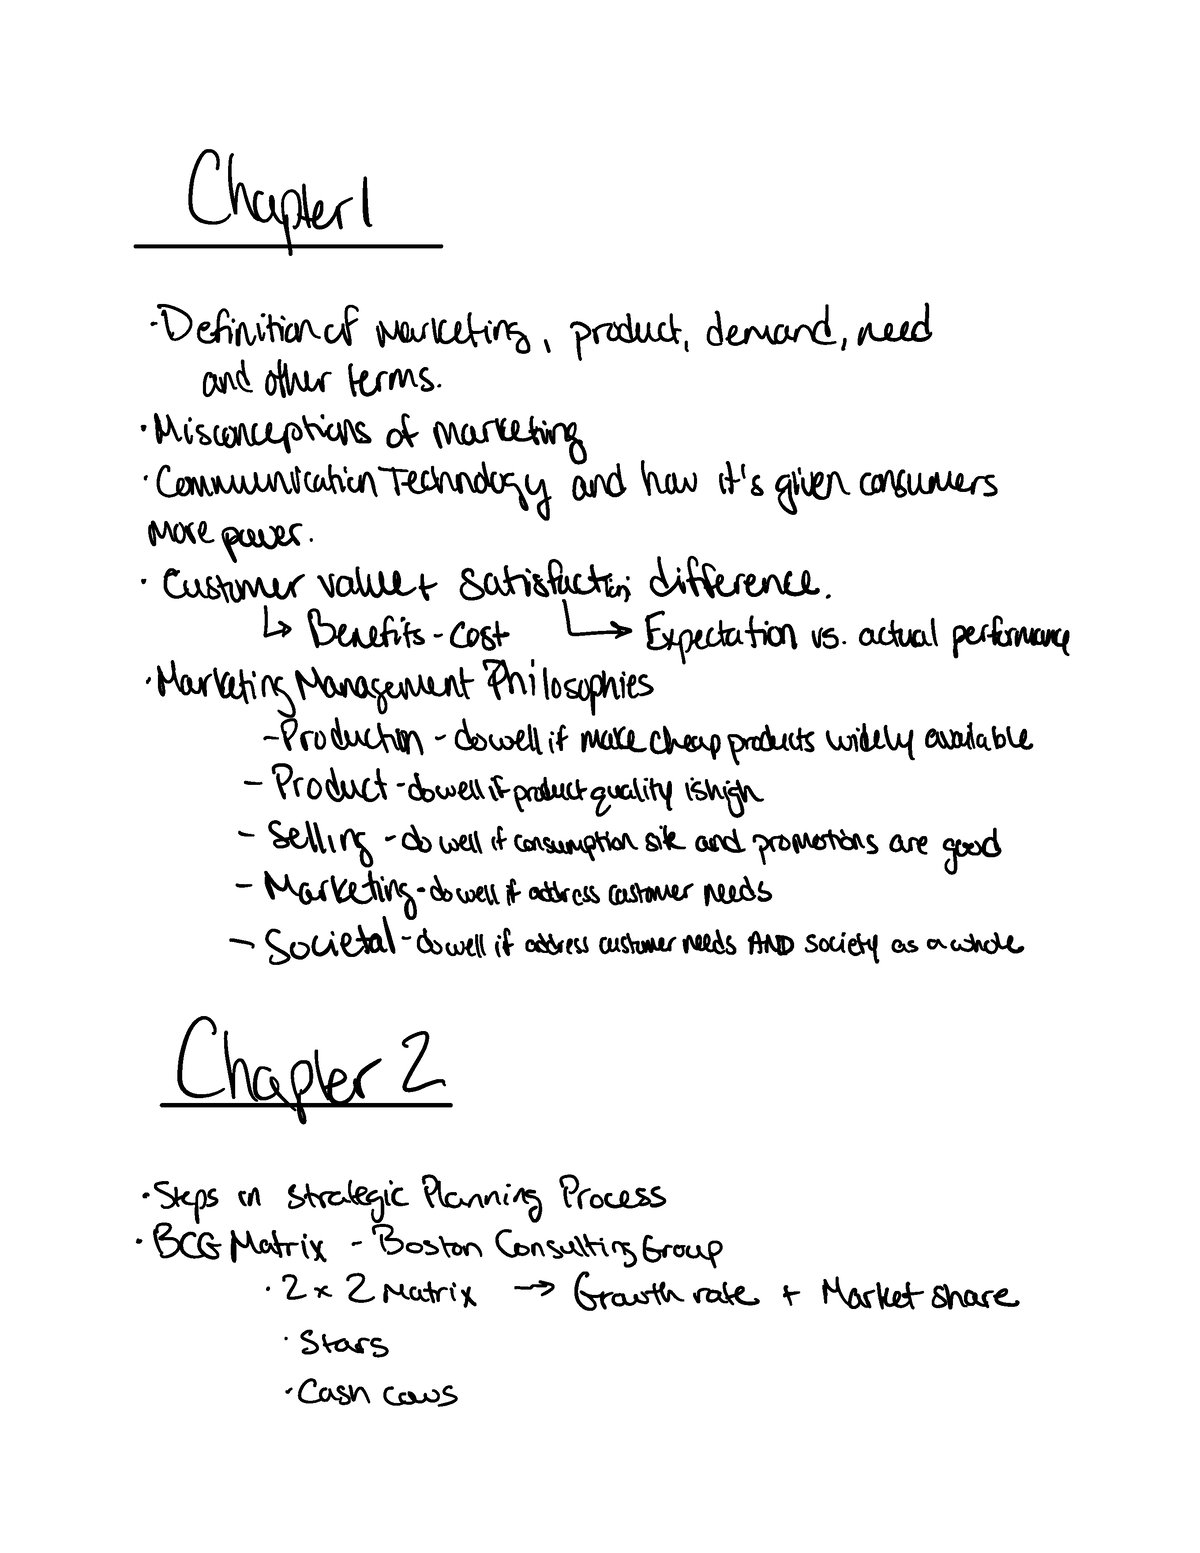 Chapter 1
· Definition of marketing, product, demand, need
and other terms.
· Misconceptions of marketing
· Communication Technology and how it's given consumers
more power.
· Customer value + satisfaction; difference.
↳ Benefits - cost ↳ Expectation vs. actual performance
· Marketing Management Philosophies
- Production - do well if make cheap products widely available
- Product - do well if product quality is high
- Selling - do well if consumption and promotions are good
- Marketing - do well if address customer needs
- Societal - do well if address customer needs AND society as a whole
Chapter 2
· Steps in Strategic Planning Process
· BCG Matrix - Boston Consulting Group
· 2 x 2 Matrix → Growth rate + Market share
· Stars
· Cash cows